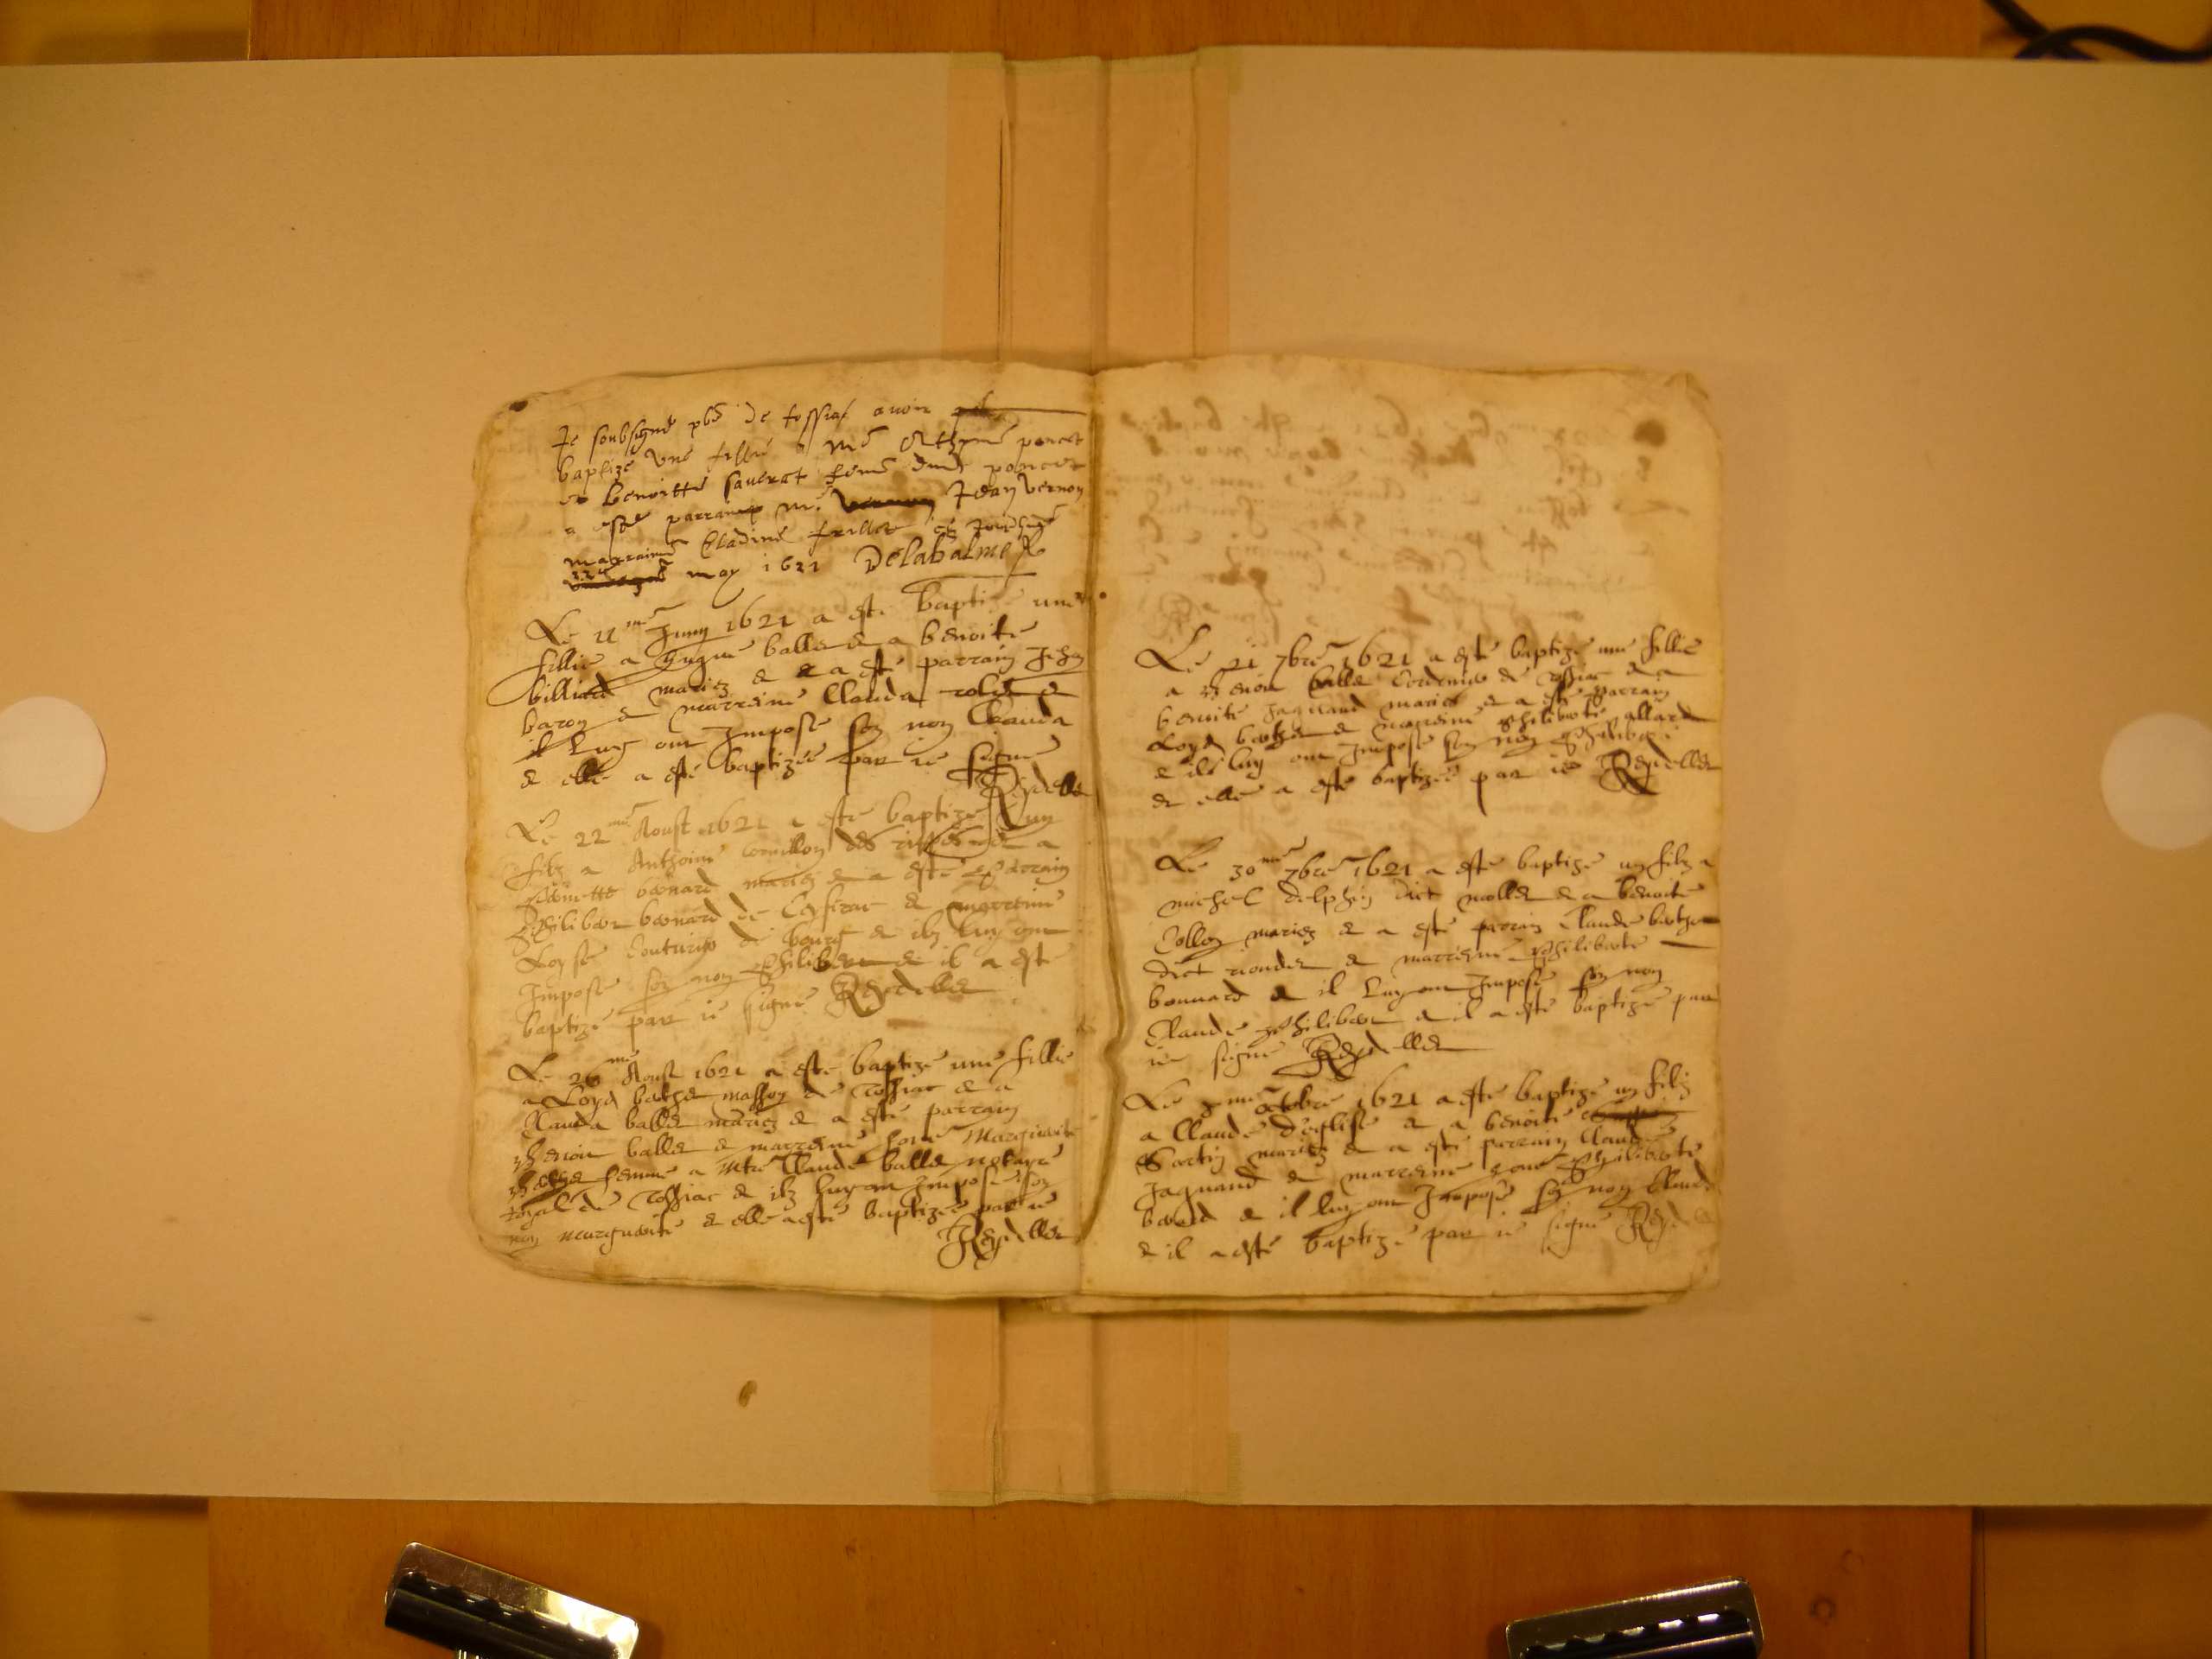 Je soubsigné pbre de tossiat avoir
baptize une fillie a Me poncet
et benoitte saverat feme dudt poncet
a esté parrain Me Jean vernon
marraine Cladine frillet ce jourdhuy
22e may 1621 Delabalme
Le 11me Juing 1621 a esté baptisé une
fillie a hugue ballet & a benoite
billiard mariez & a esté parrain Jehan
baron & marreine Clauda
il luy ont Imposé son non Clauda
& elle a esté baptizée par ie signé
Reydellet
Le 22me Aoust 1621 a esté baptizé un
filz a Anthoine cornillon des & a
bonard mariez & a esté parrain
philibert bonard de Ceysiriat & marreine
Loyse Couturier de bourg & ilz luy ont
Imposé son non philibert & il a esté
baptizé par ie signé Reydellet
Le 26me Aoust 1621 a esté baptizé une fillie
a Loys bathet masson de Tossiac & a
Clauda ballet mariez & a esté parrain
benoit ballet & marreine hone Marguerite
femme a Mtre Claude ballet notayre
royal de Tossiac & ilz luy ont Imposé son
non marguerite & elle a esté baptizée par ie
Reydellet
Le 21 7bre 1621 a esté baptizé une fillie
a benoit ballet Cordenier de Tossiac & a
benoite Jaquand mariés & a esté parrain
Loys bathet & marreine philiberte allard
& ilz luy ont Imposé son non philiberte
& elle a esté baptizée par ie Reydellet
Le 30me 7bre 1621 a esté baptizé un filz a
michel delphin dict mollet & a benoite
Collon mariez & a esté parrain Claude bathet
dict riondet & marreine philiberte
bonnard & il luy ont Imposé son non
Claude philibert & il a esté baptizé par
ie signé Reydellet
Le 3me octobre 1621 a esté baptizé un filz
a Claude deglise & a benoite
Sartin mariez & a esté parrain Claude
Jaquand & marreine hone philiberte
& il luy ont Imposé son non Claude
& il a esté baptizé par ie signé Reydellet